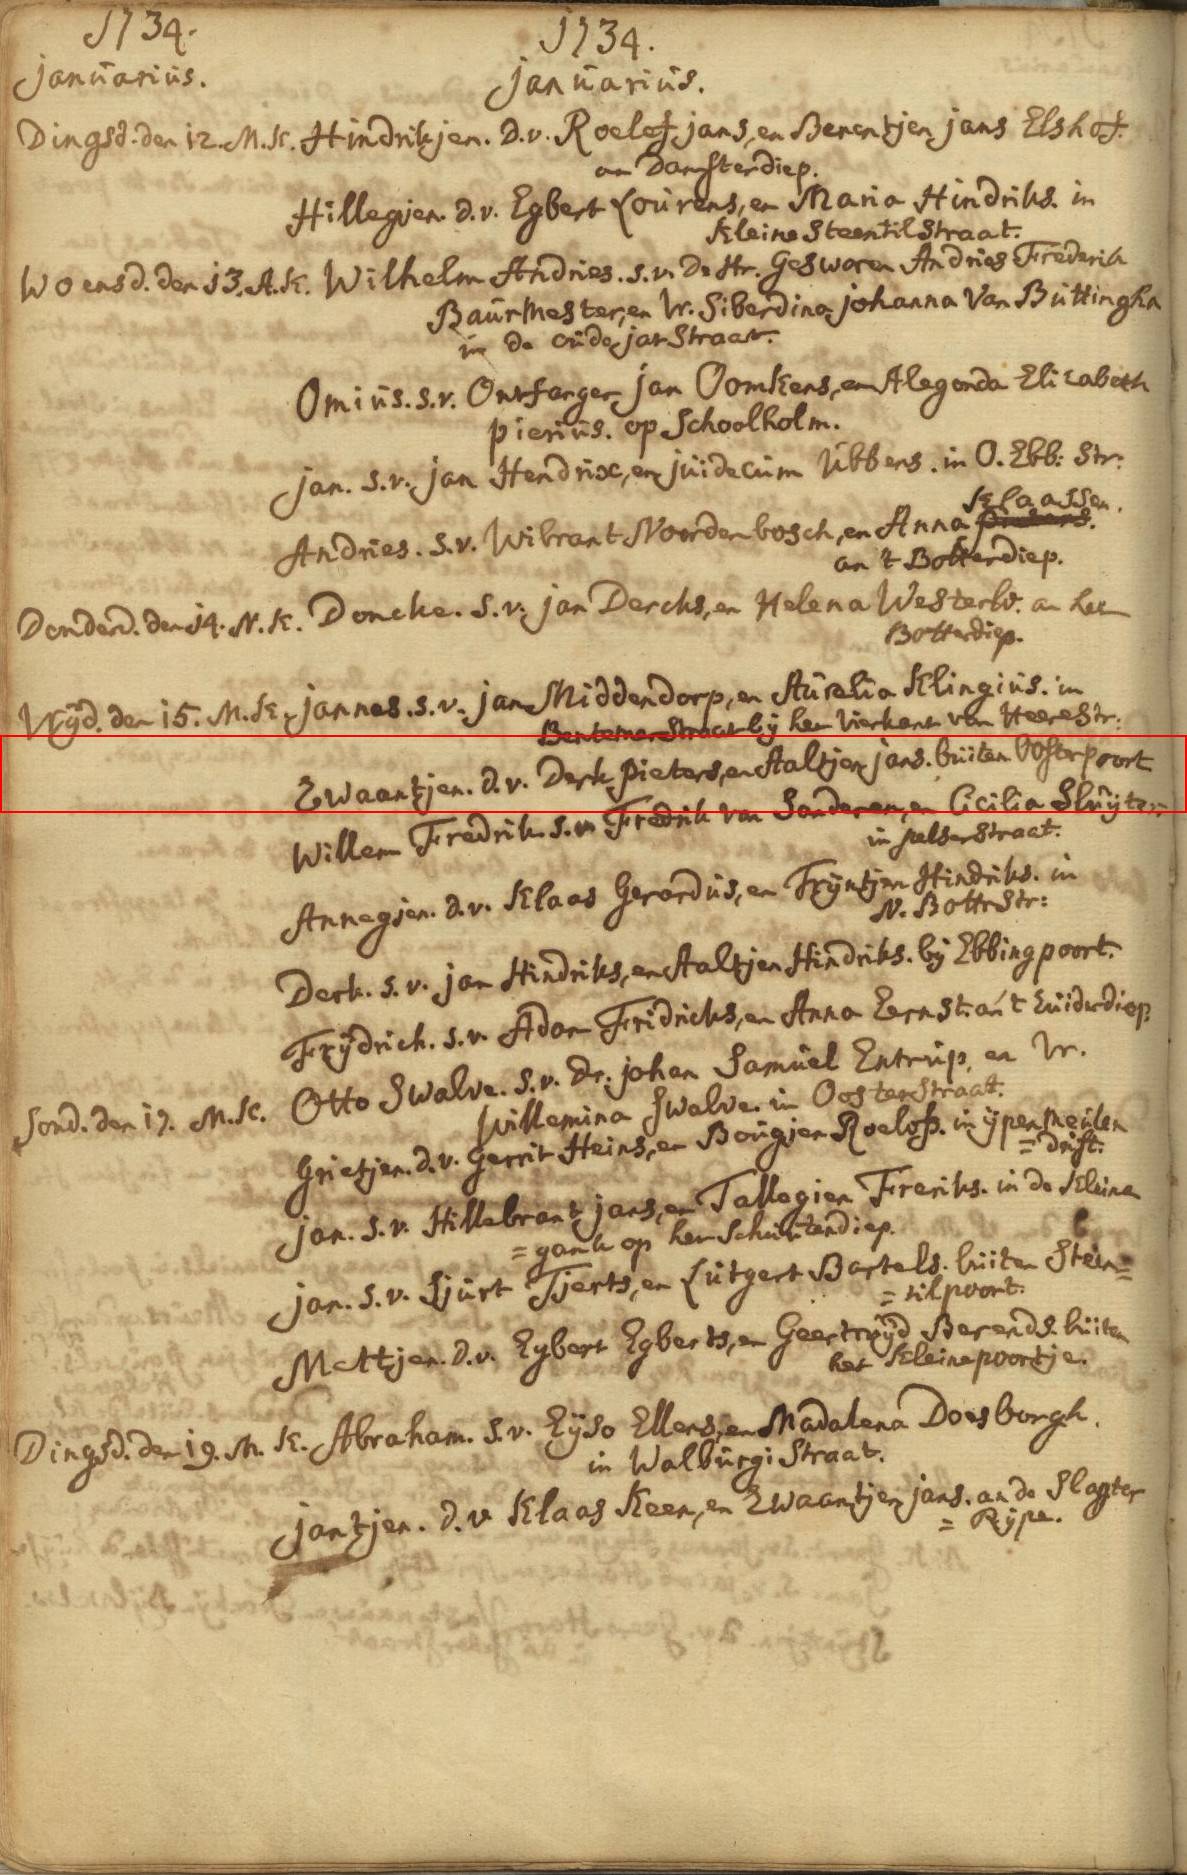 1734. 1734.
januarius. januarius.
Dingsd. den 12. M.K. Hindrikjen. d.v. Roelof jans, en Berentjen jans Elshof.
an Damsterdiep.
Hillegjen. d.v. Egbert Lourens, en Maria Hindriks. in
kleine Steentilstraat.
Woensd. den 13. A.K. Wilhelm Andries. s.v. De Hr. Gesworen Andries Frederik
Baurmester, en Vr. Siberdina johanna Van Buttingha
in de oude jatStraat.
Omius. s.v. Ontfanger jan Oomkens, en Alegonda Elizabeth
Pierius. op Schoolholm.
jan. s.v. jan Hendrix, en juidecum Ubbens. in O. Ebb: Str:
Klaassen.
Andries. s.v. Wibrant Noordenbosch, en Anna Pieters.
an 't Botterdiep.
Donderd. den 14. N.K. Doncke. s.v. jan Dercks, en Helena Westerlo. an het
Botterdiep.
Vrijd. den 15. M.K. jannes. s.v. jan Middendorp, en Aurelia Klingius. in
Bentemerstraat bij het vierkant van HeereStr:
Zwaantjen. d.v. Derk Pieters, en Aaltjen jans. buiten Oosterpoort
Willem Fredrik. s.v. Fredrik van Sonderen, en Cicilia Sluyter
in pelserstraat.
Annegjen. d.v. Klaas Gerardus, en Trijntjen Hindriks. in
N. BottrStr:
Derk. s.v. jan Hindriks, en Aaltjen Hindriks. bij Ebbingpoort.
Frijdrich. s.v. Adam Fridricks, en Anna Zernst. an 't Zuiderdiep.
Sond. den 17. M.K. Otto Swalve. s.v. Dr. johan Samuel Entrup, en Vr.
Willemina Swalve. in Oosterstraat.
Grietjen. d.v. Gerrit Heins, en Bougjen Roelofs. in ijpenmeulen
= drift.
jan. s.v. Hillebrant jans, en Tallegien Freriks. in de kleine
= gank op het Schuitendiep.
jan. s.v. Sjurt Tjerts, en Lutgert Bartels. buiten Stein=
= tilpoort.
Mettjen. d.v. Egbert Egberts, en Geertruyd Berends. buiten
het kleinepoortje.
Dingsd. den 19. M.K. Abraham. s.v. Eijso Ellens, en Madalena Doesborgh.
in Walburgi Straat.
jantjen. d.v. Klaas Keen, en Zwaantjen jans. an de Slagter
= Rijpe.